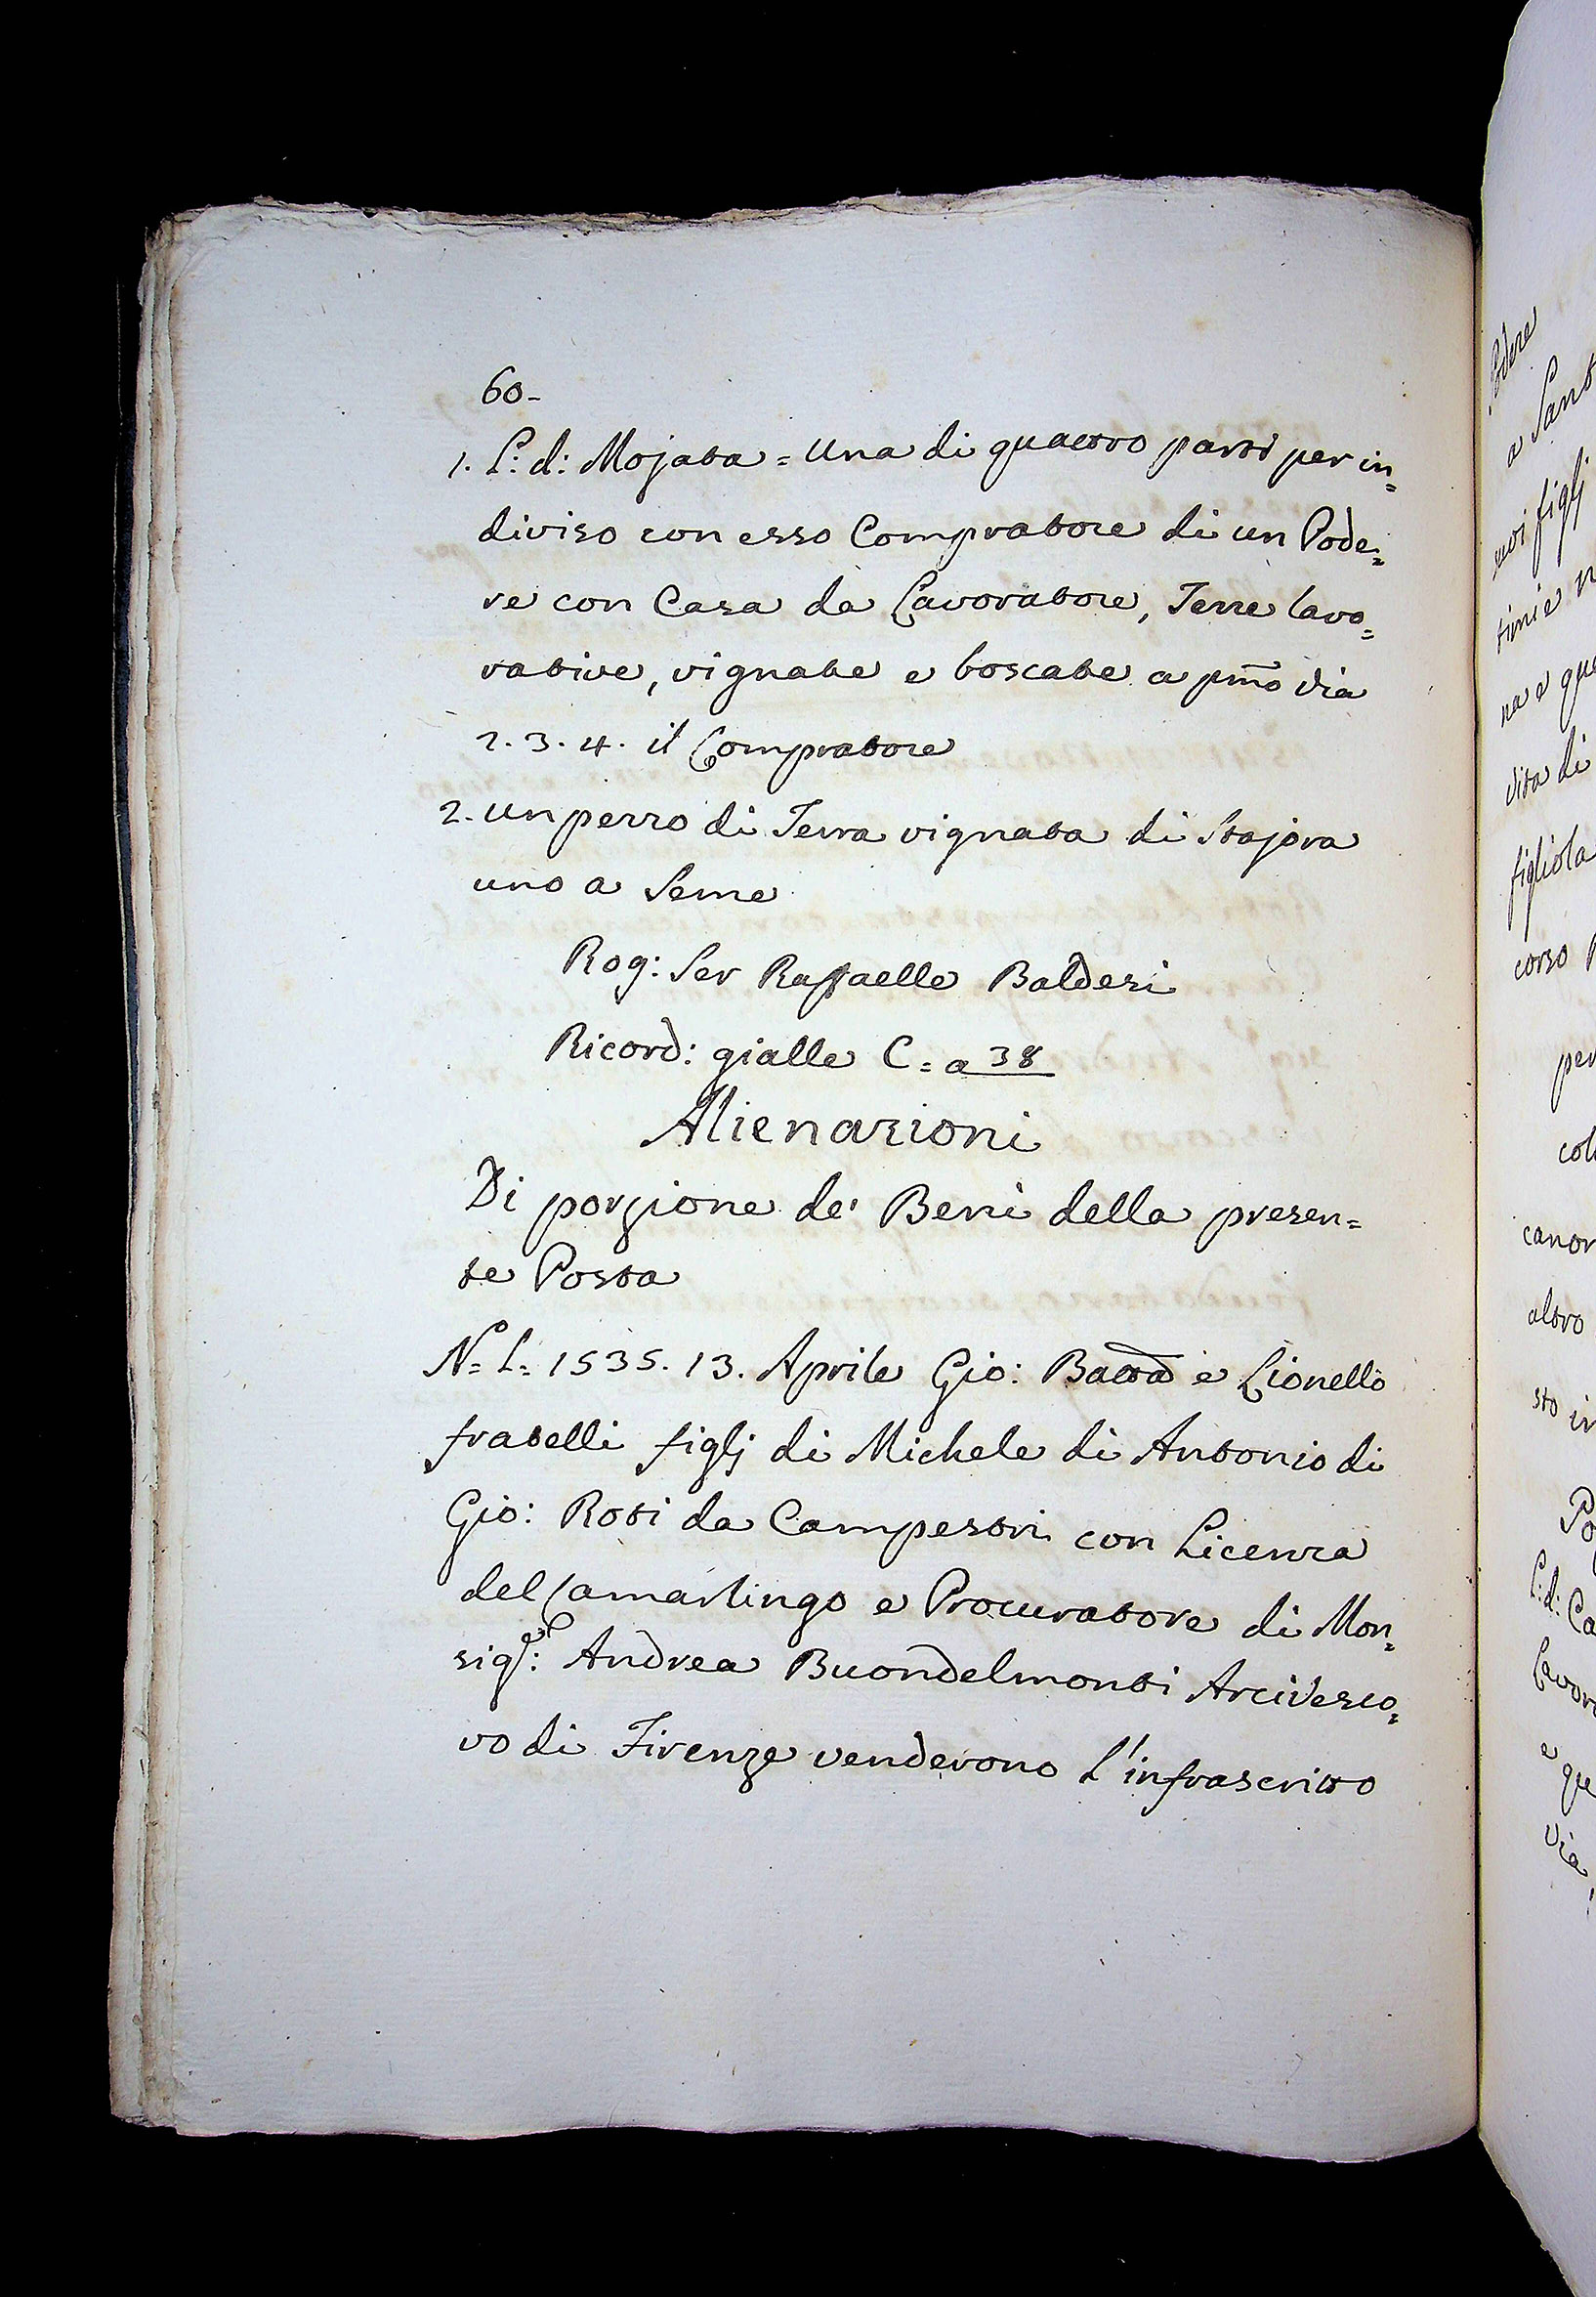 60-
1. L: d: Mojata = Una di quattro parti per in=
diviso con esso Compratore di un Pode=
re con Casa da Lavoratore, Terre lavo=
rative, vignate e boscate a pmo via
2. 3. 4. il Compratore
2. Un pezzo di Terra vignata di Stajora
uno a Seme
Rog: Ser Raffaelle Balderi
Ricord: gialle C = a 38
Alienazioni
Di porzione de' Beni della presen=
te Posta
N° 1. 1535. 13. Aprile Gio: Batta e Lionello
fratelli figlj di Michele di Antonio di
Gio: Roti da Campestri con Licenza
del Camarlingo e Procuratore di Mon=
sigre: Andrea Buondelmonti Arcivesco=
vo di Firenze venderono L'infrascritto
Podere
a Sant
suoi figlj
na e que
vita di
figliola
corso
per
col
canon
altro
sto in
Po
L: d: Ca
Lavor
e
que
via,